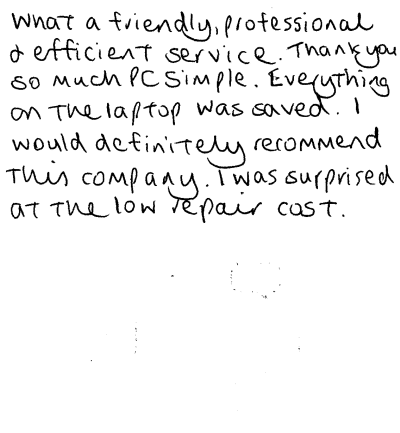 What a friendly, professional
& efficient service. Thank you
so much PC Simple. Everything
on the laptop was saved. I
would definitely recommend
this company. I was surprised
at the low repair cost.